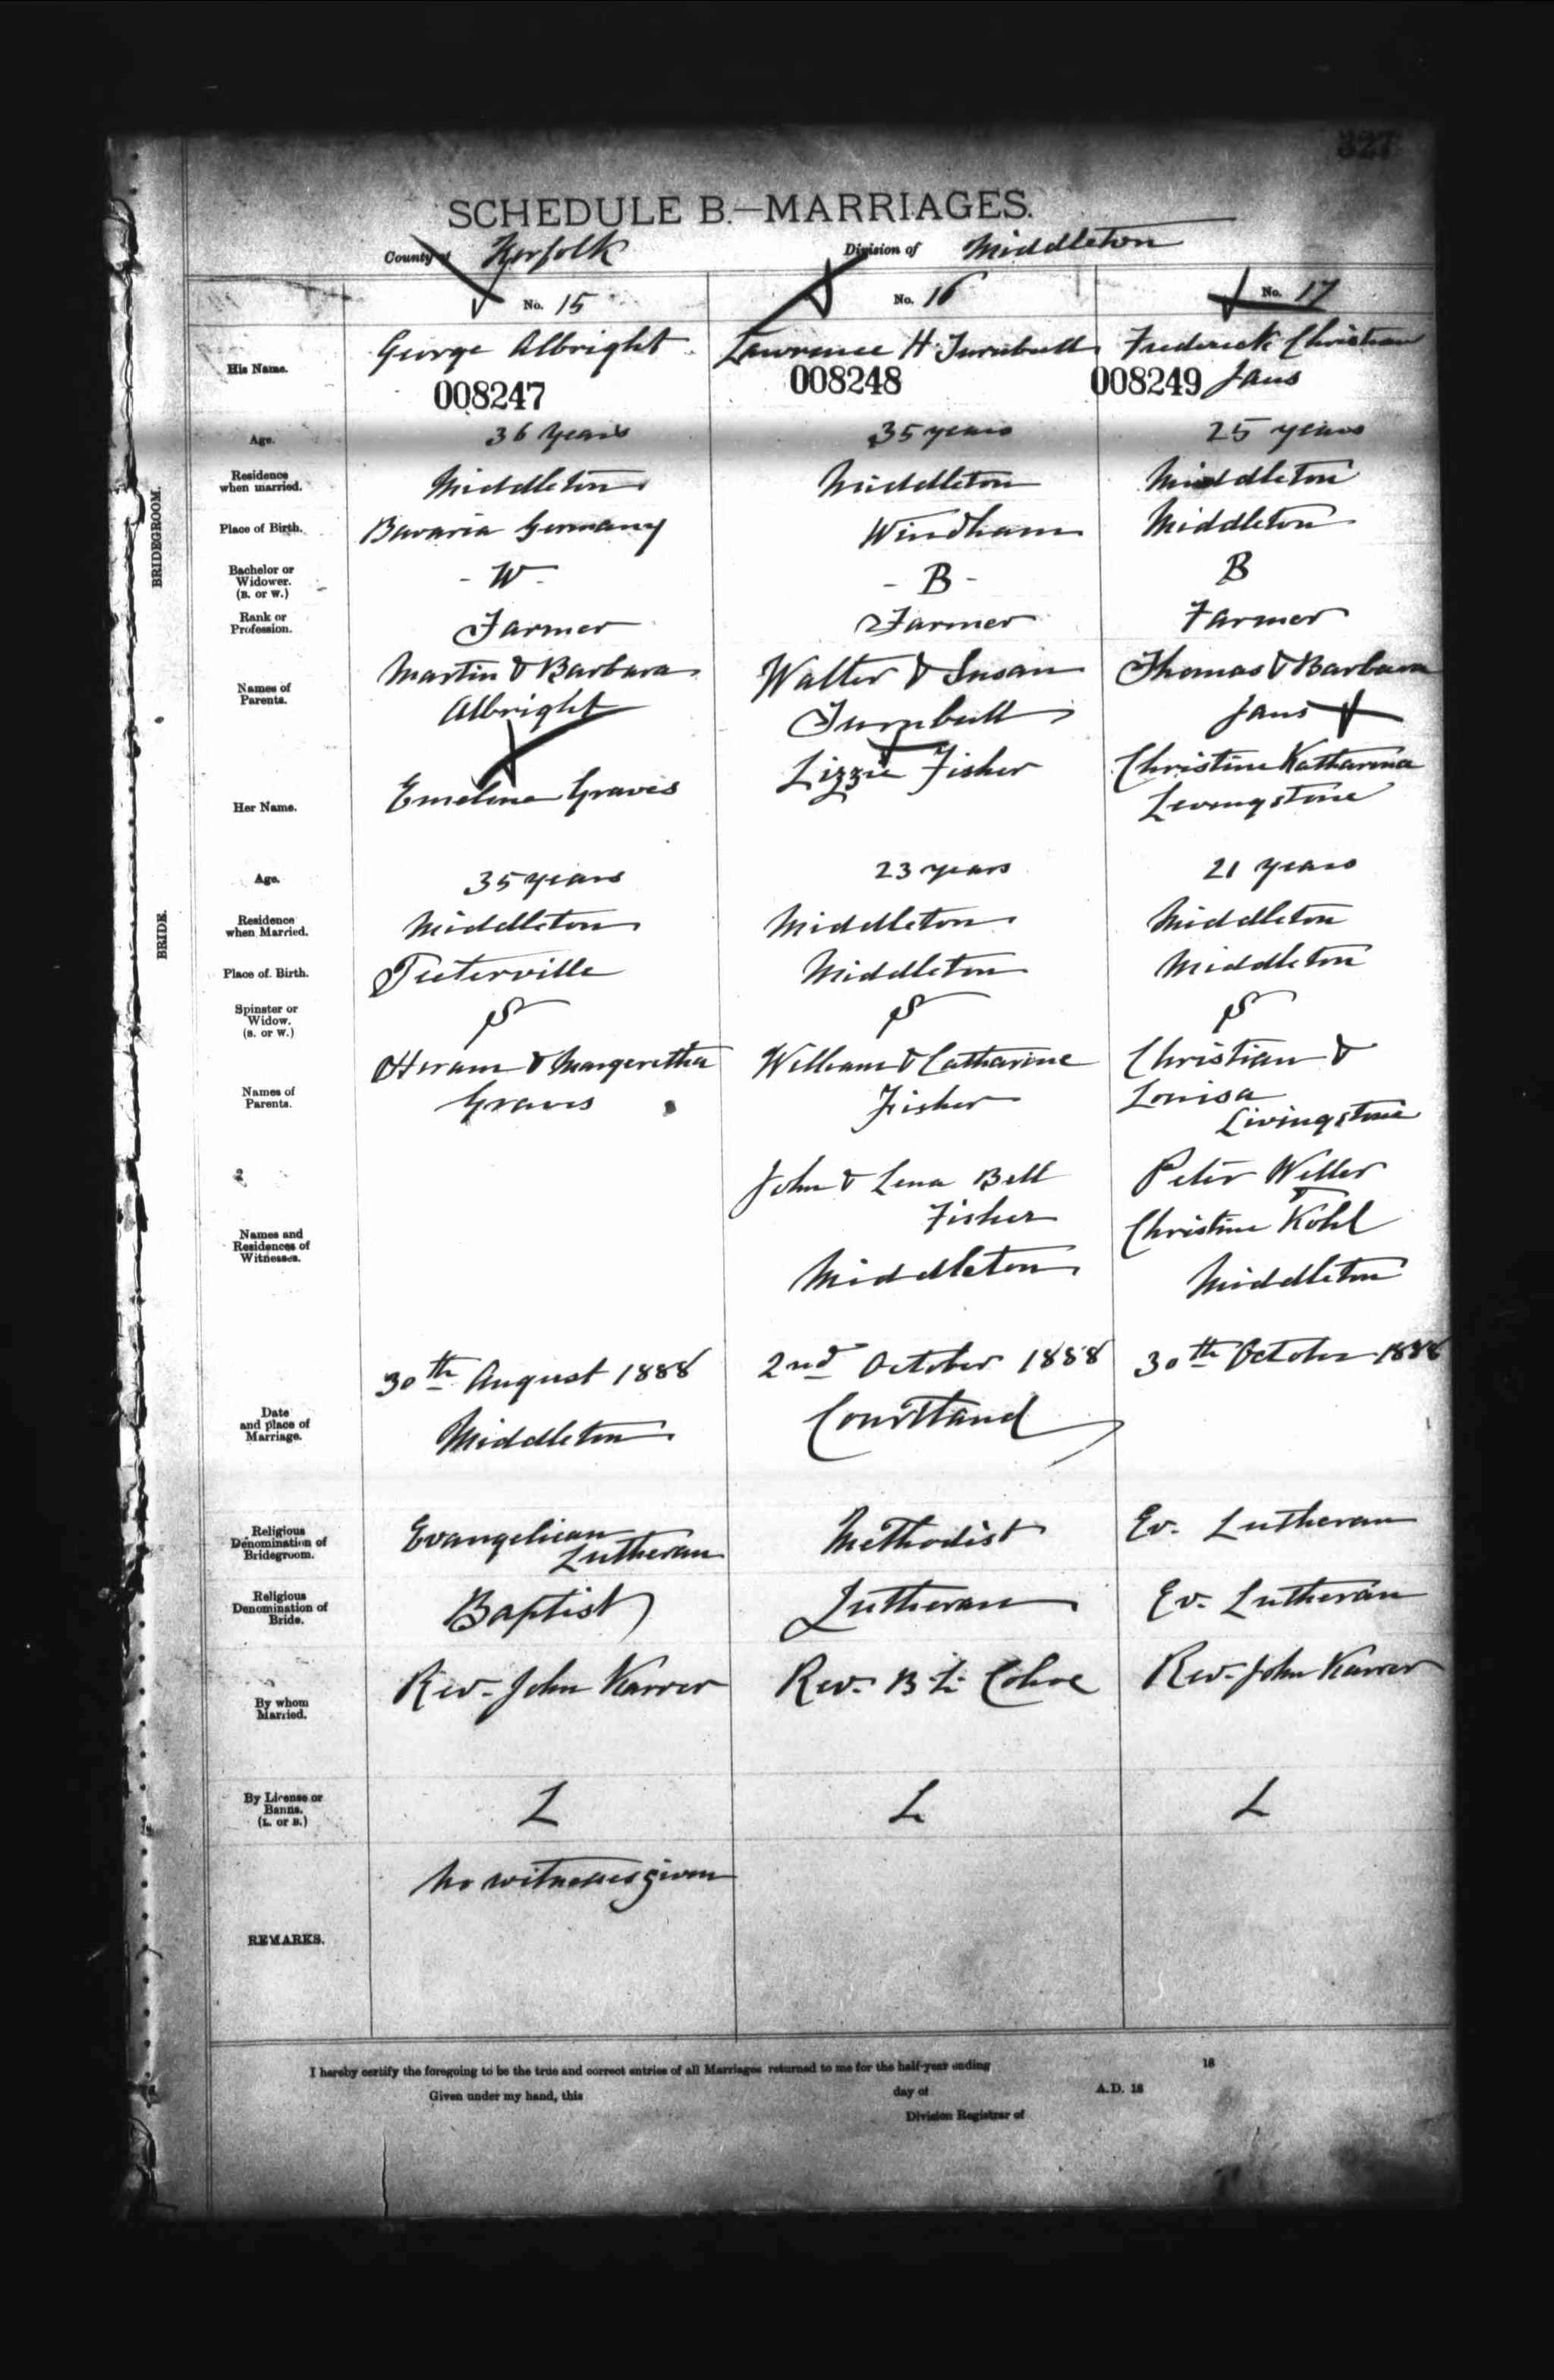 327
SCHEDULE B.—MARRIAGES.
County of Norfolk Division of Middleton
No. 15 No. 16 No. 17
His Name. George Albright Lawrence H Turnbull Frederick Christian
008247 008248 008249 Jans
Age. 36 years 35 years 25 years
BRIDEGROOM.
Residence
when married. Middleton Middleton Middleton
Place of Birth. Bavaria Germany Windham Middleton
Bachelor or
Widower.
(B. or W.) - W - - B - B
Rank or
Profession. Farmer Farmer Farmer
Names of
Parents. Martin & Barbara Walter & Susan Thomas & Barbara
Albright Turnbull Jans
Her Name. Emeline Graves Lizzie Fisher Christine Katharina
Levingstone
Age. 35 years 23 years 21 years
BRIDE.
Residence
when Married. Middleton Middleton Middleton
Place of Birth. Teeterville Middleton Middleton
Spinster or
Widow.
(S. or W.) S S S
Names of
Parents. Hiram & Margeretha William & Catharine Christian &
Graves Fisher Louisa
Livingstone
Names and
Residences of
Witnesses. John & Lena Bell Peter Weller
Fisher Christine Kohl
Middleton Middleton
30th August 1888 2nd October 1888 30th October 1888
Date
and place of
Marriage. Middleton Courtland
Religious
Denomination of
Bridegroom. Evangelican Methodist Ev. Lutheran
Lutheran
Religious
Denomination of
Bride. Baptist Lutheran Ev. Lutheran
By whom
Married. Rev. John Karrer Rev. B L Cohoe Rev. John Karrer
By License or
Banns.
(L. or B.) L L L
REMARKS. No witnesses given
I hereby certify the foregoing to be the true and correct entries of all Marriages returned to me for the half-year ending 18
Given under my hand, this day of A.D. 18
Division Registrar of